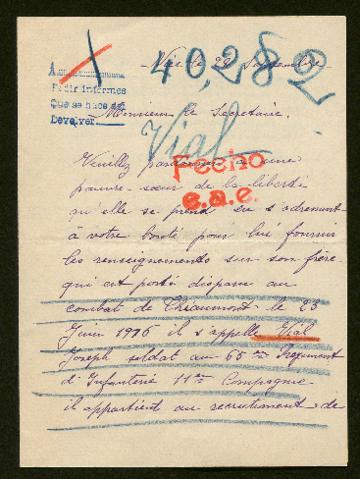 Nice le 28 Septembre
40,282
A
Pedir informes
Que se hace así
Devolver
Monsieur le Secretaire.
Vial
Veuillez pardonner a une
Fecho
pauvre soeur de la liberté
s.a.e.
qu'elle se prend en s'adressant
à votre bonté pour lui fournir
les renseignements sur son frère
qui est porté disparu au
combat de Thiaumont le 23
Juin 1916 il s'appelle Vial
Joseph soldat au 65 me Regiment
d'Infanterie 11me Compagnie
il appartient au recrutement de